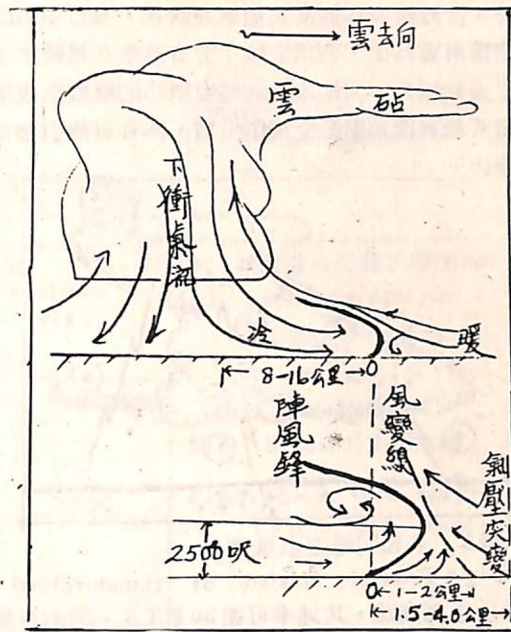 雲去向
雲砧
下衝氣流
冷
暖
8-16公里
0
陣風鋒
風變線
氣壓突變
2500呎
0
1-2公里
1.5-4.0公里